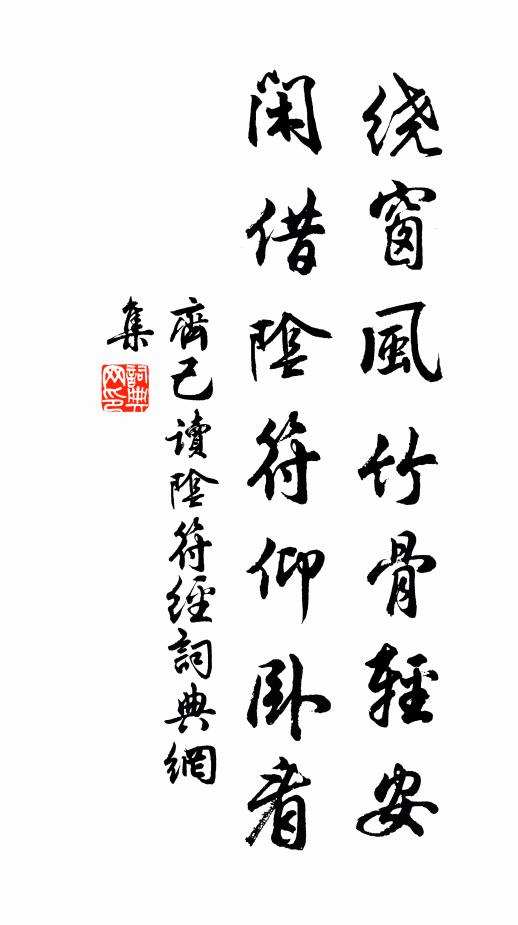 绕窗風竹骨輕安
閑借陰符仰卧看
齊己讀陰符經詞典網
集
詞典网印